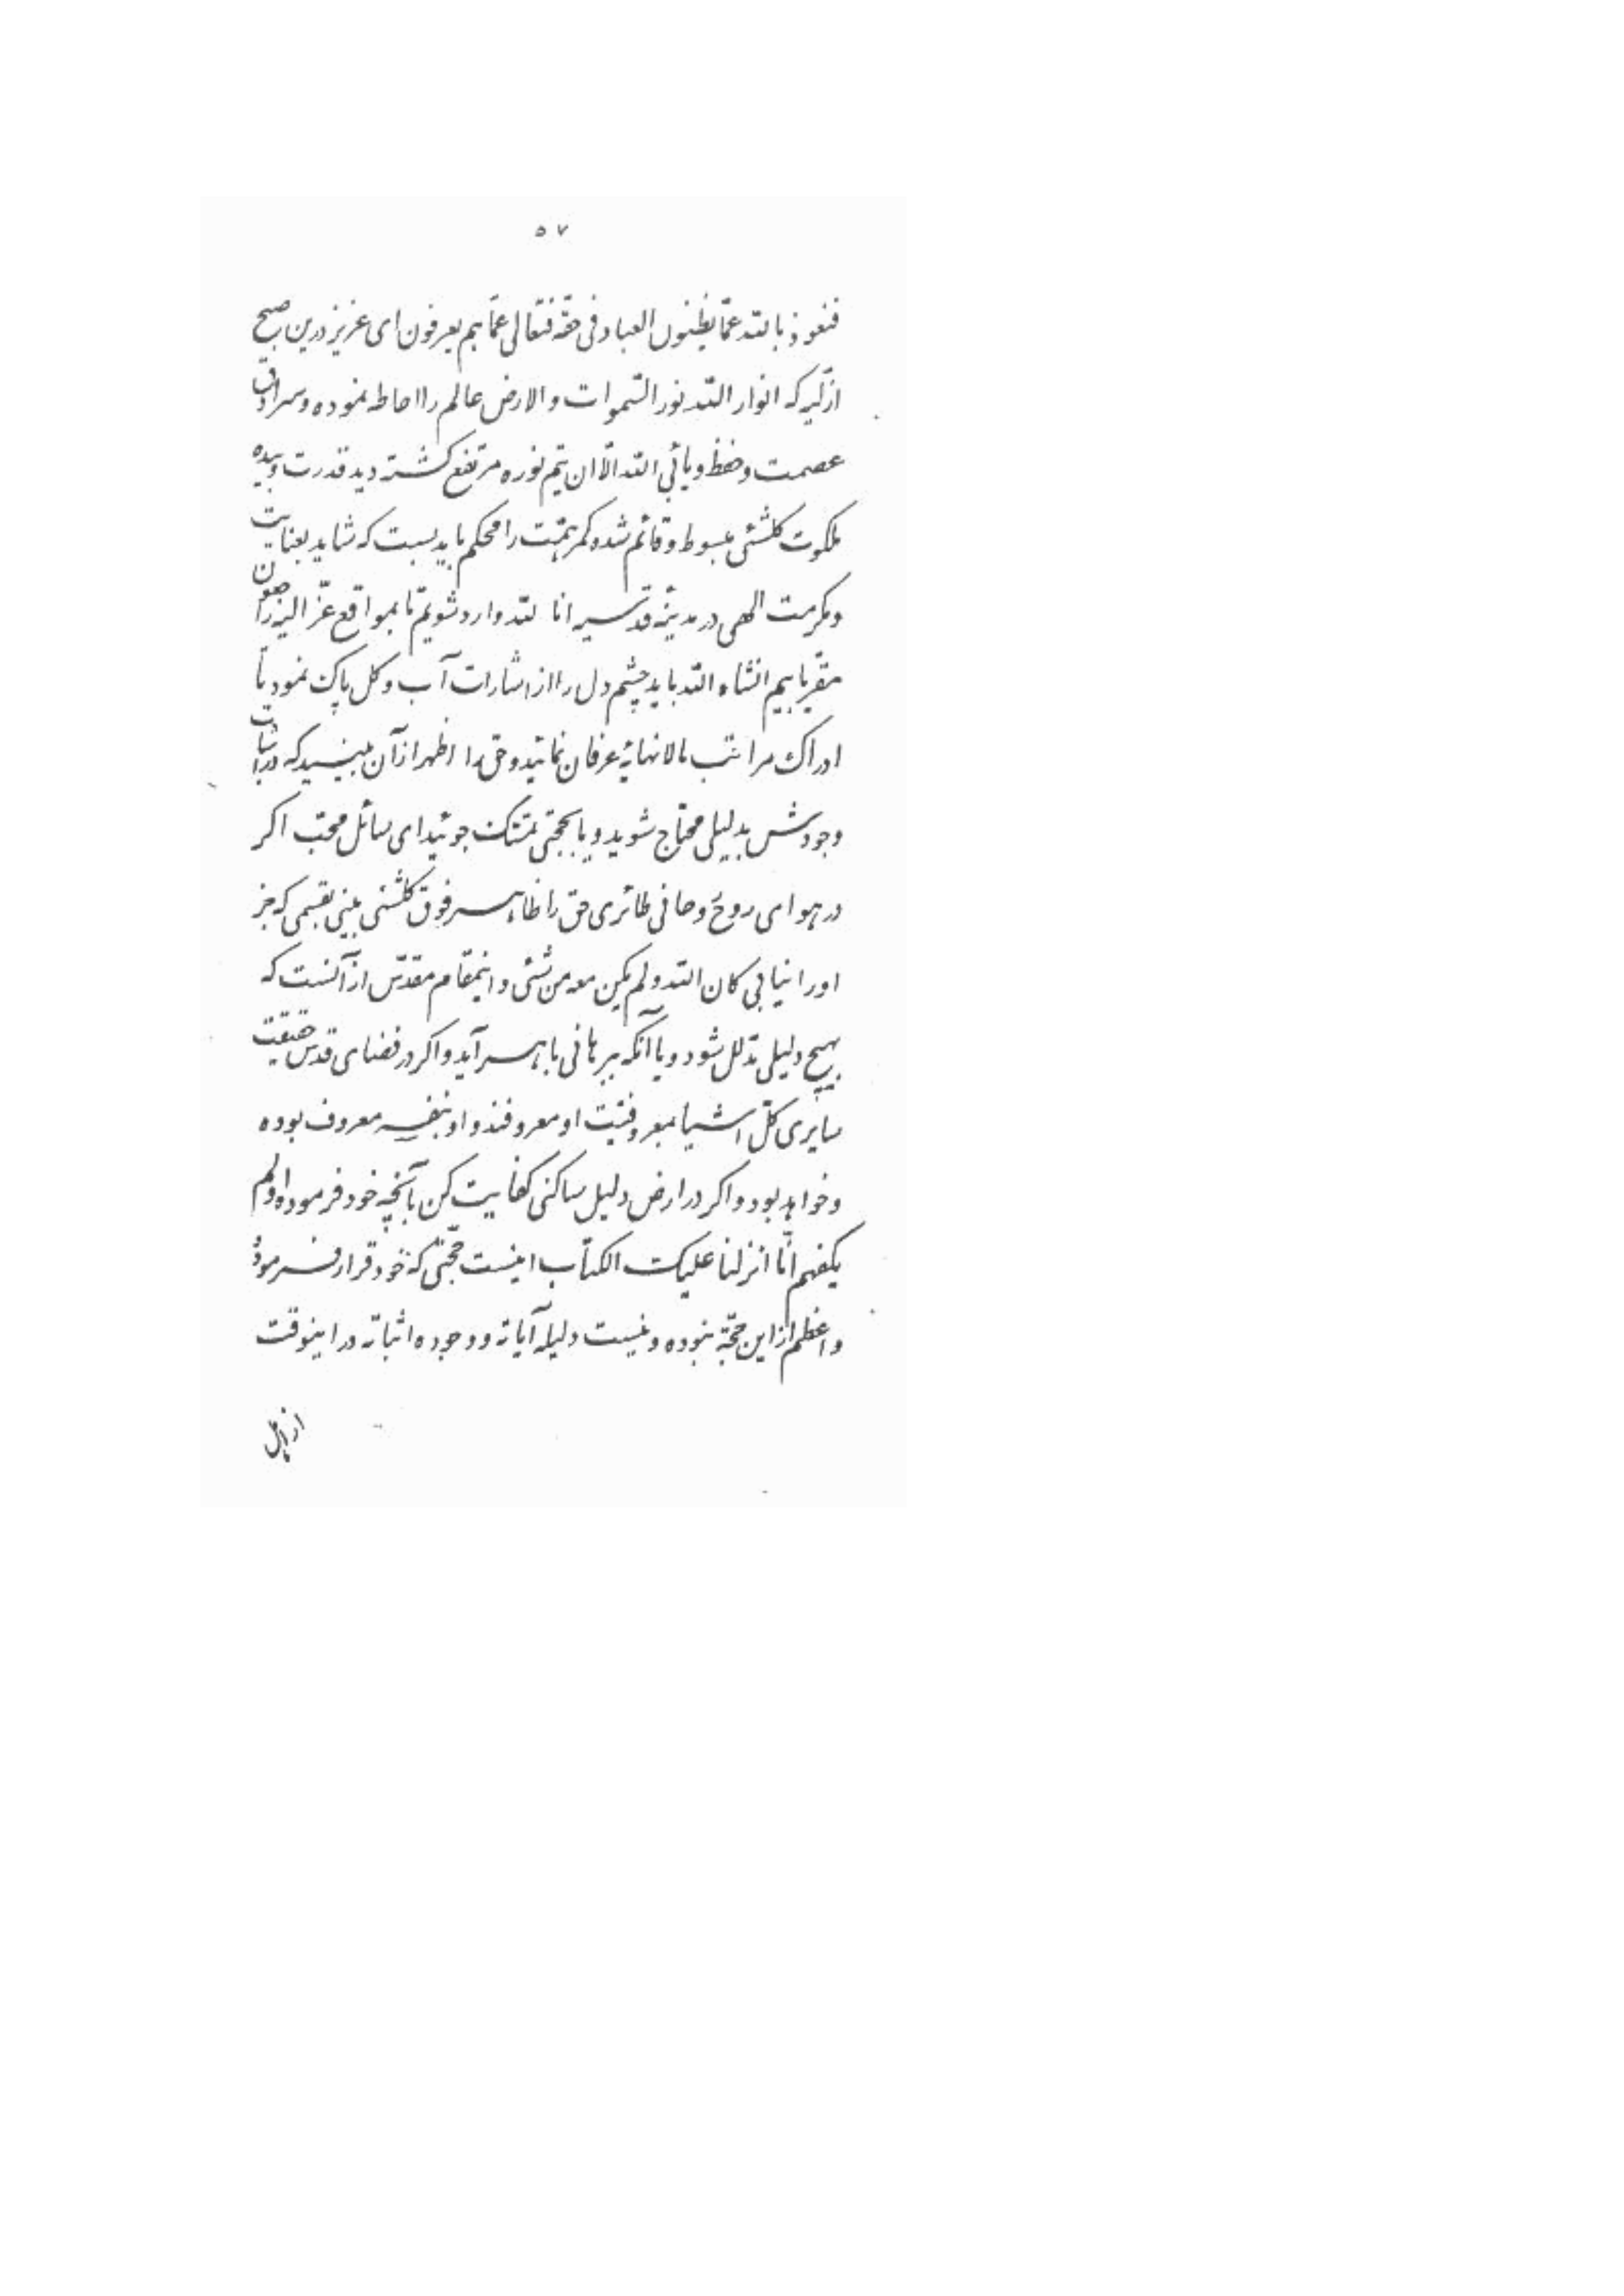 ٥٧
فنعوذ بالله عمّا یظنّون العباد فی حقّه فتعالی عمّا هم یعرفون ای عزیز درین صبح
ازلی که انوار الله نور السّموات والارض عالم را احاطه نموده و سرادق
عصمت و حفظ ویأبی الله الّا ان یتمّ نوره مرتفع گشته و ید قدرت و بیده
ملکوت کلشئی مبسوط و قائم شده کمر همّت را محکم باید بست که شاید بعنایت
و مکرمت الهی در مدینهٔ قدسیه انا لله وارد شویم تا بمواقع عزّ الیه راجعون
مقرّ یابیم انشاء الله باید چشم دل را از اشارات آب و گل پاک نمود تا
ادراک مراتب مالانهایهٔ عرفان نمائید و حق را اظهر از آن ببینید که در اثبات
وجودش بدلیلی محتاج شوید و یا بحجّتی تمسّک جوئید ای سائل محبّ اگر
در هوای روح روحانی طائری حق را ظاهر فوق کلشئی بینی بقسمی که جز
او را نیابی کان الله و لم یکن معه من شئی و اینمقام مقدّس از آنست که
بهیچ دلیلی مدلّل شود و یا آنکه ببرهانی باهر آید و اگر در فضای قدس حقیقت
سایری کلّ اشیا بمعروفیّت او معروفند و او بنفسه معروف بوده
و خواهد بود و اگر در ارض دلیل ساکنی کفایت کن بآنچه خود فرموده اولم
یکفهم انّا انزلنا علیک الکتاب اینست حجّتی که خود قرار فرموده
و اعظم از این حجّة نبوده و نیست دلیله آیاته و وجوده اثباته در اینوقت
از اهل